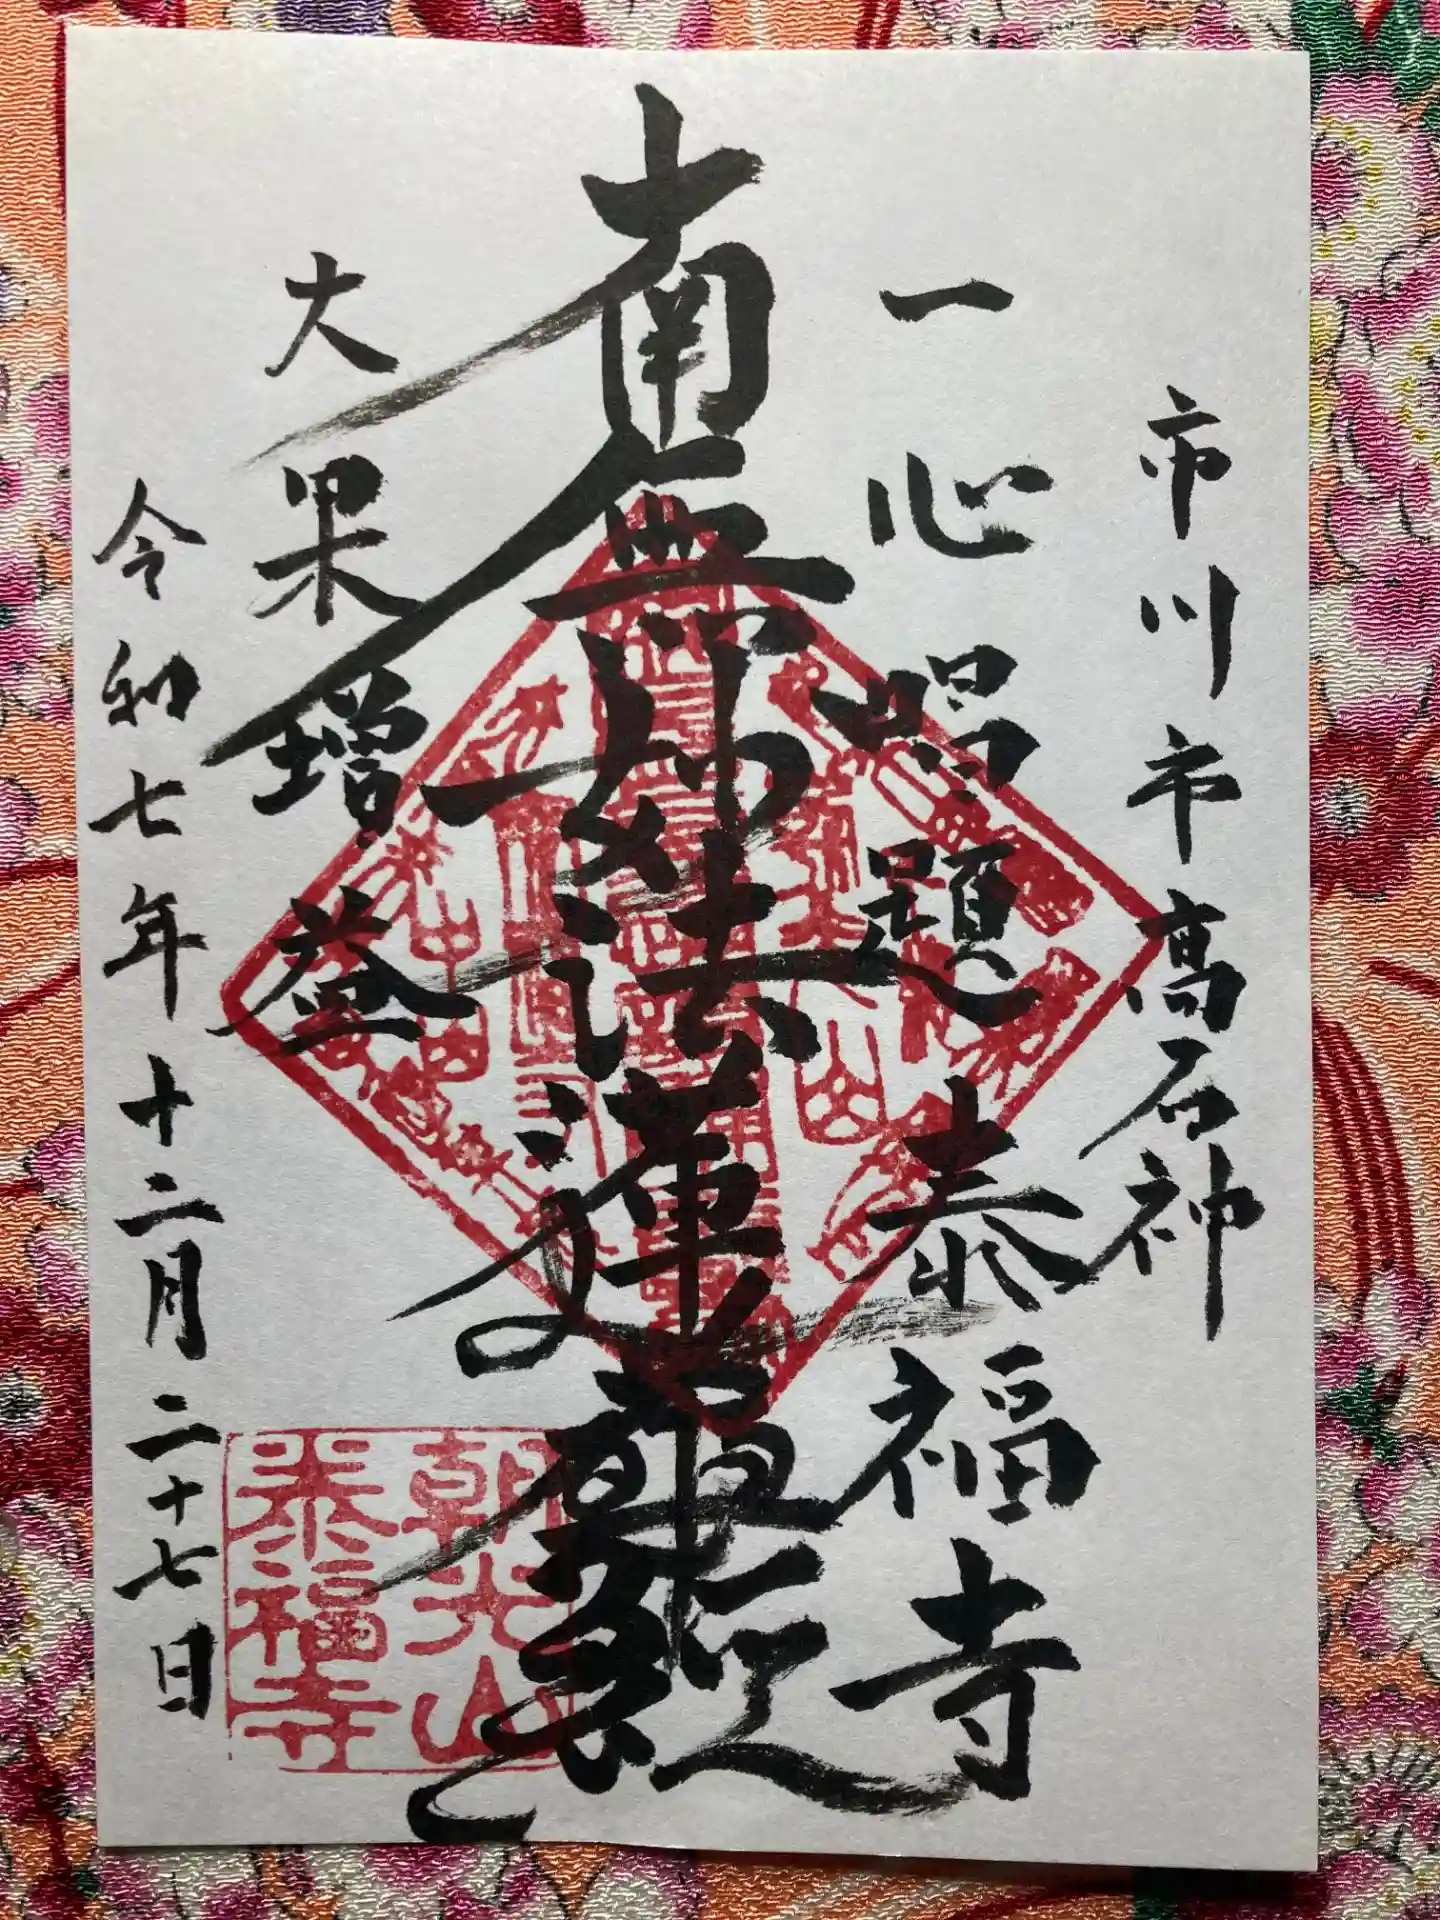 市川市高石神
一心唱題 泰福寺
南無妙法蓮華経
大果増益
令和七年十二月二十七日
朝光山
泰福寺